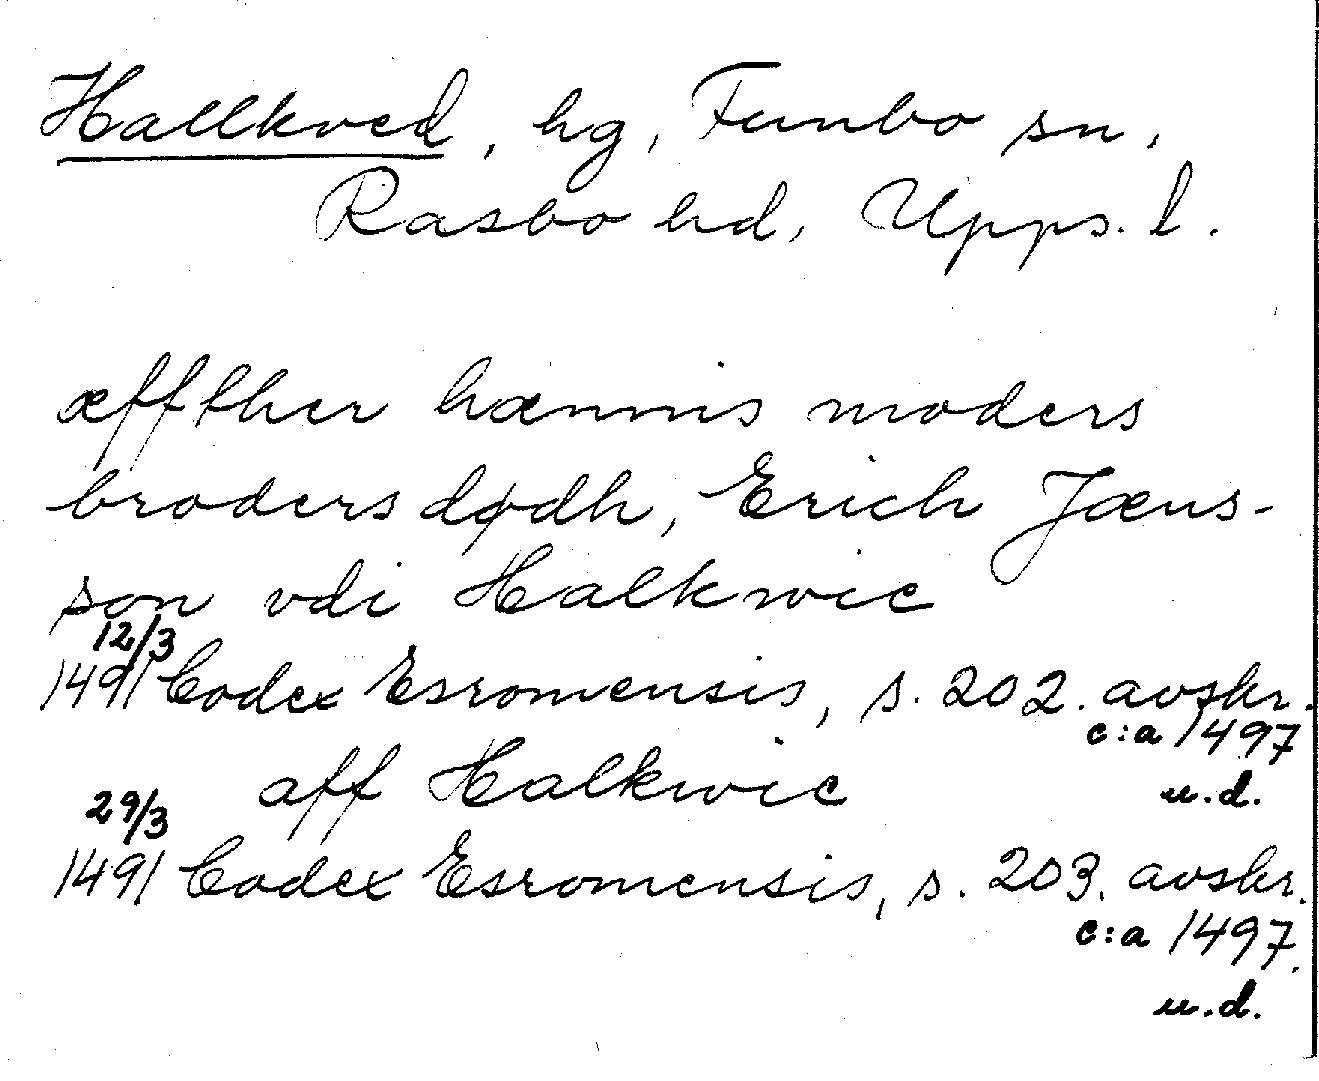 Hallkved, hg, Funbo sn,
Rasbo hd, Upps. l.
æffther hænnis moders
broders dødh, Erich Jæns-
son vdi Halkwic
12/3
1491 Codex Esromensis, s. 202. avskr.
c:a 1497
aff Halkwic
u.d.
29/3
1491 Codex Esromensis, s. 203. avskr.
c:a 1497.
u.d.